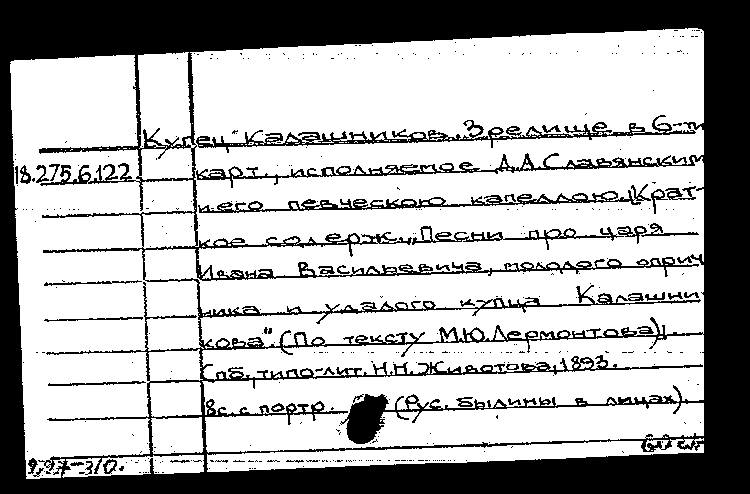 Купец Калашников. Зрелище в 6-ти
18.275.6.122 карт., исполняемое Д.А.Славянским
и его певческою капеллою. [Крат-
кое содерж. „Песни про царя
Ивана Васильевича, молодого оприч
ника и удалого купца Калашни-
кова". (По тексту М.Ю.Лермонтова)].
Спб., типо-лит. Н.Н.Животова, 1893.
8с. с портр. (Рус. былины в лицах).